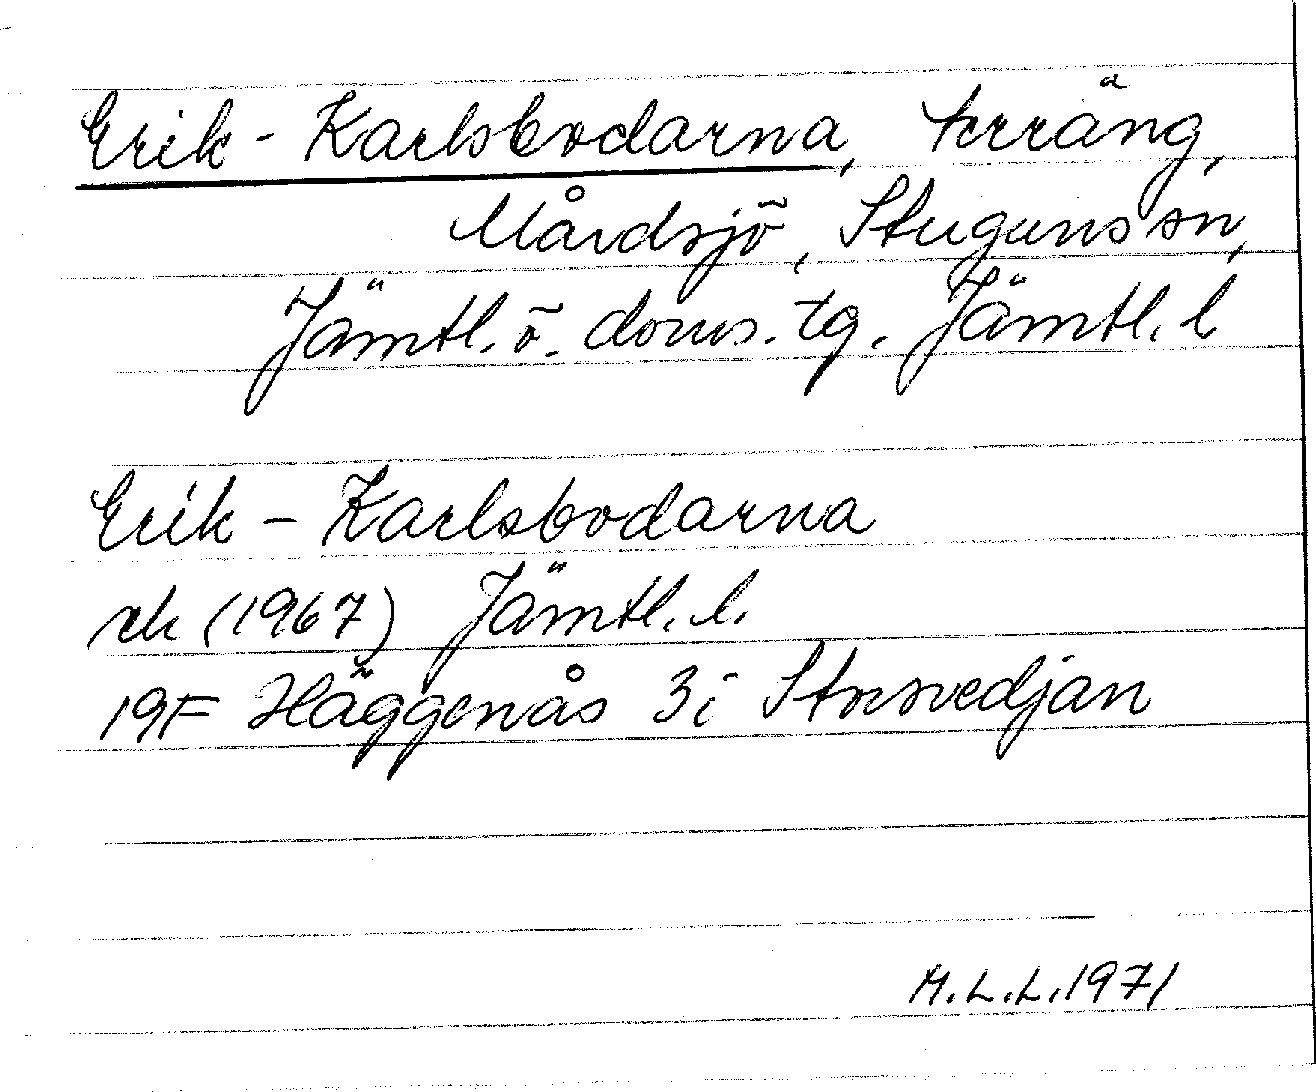 Erik-Karlsbodarna, terräng,
Mårdsjö, Stuguns sn,
Jämtl. ö. doms. tg. Jämtl. l
Erik-Karlsbodarna
rek (1967) Jämtl. l.
19F Häggenås 3i Storsvedjan
M.L.L. 1971